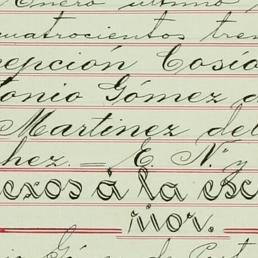 Enero último
cuatrocientos tre
cepción Cosío
tonio Gómez d
Martinez del
chez. — E. N. y
exos á la esc
rior.